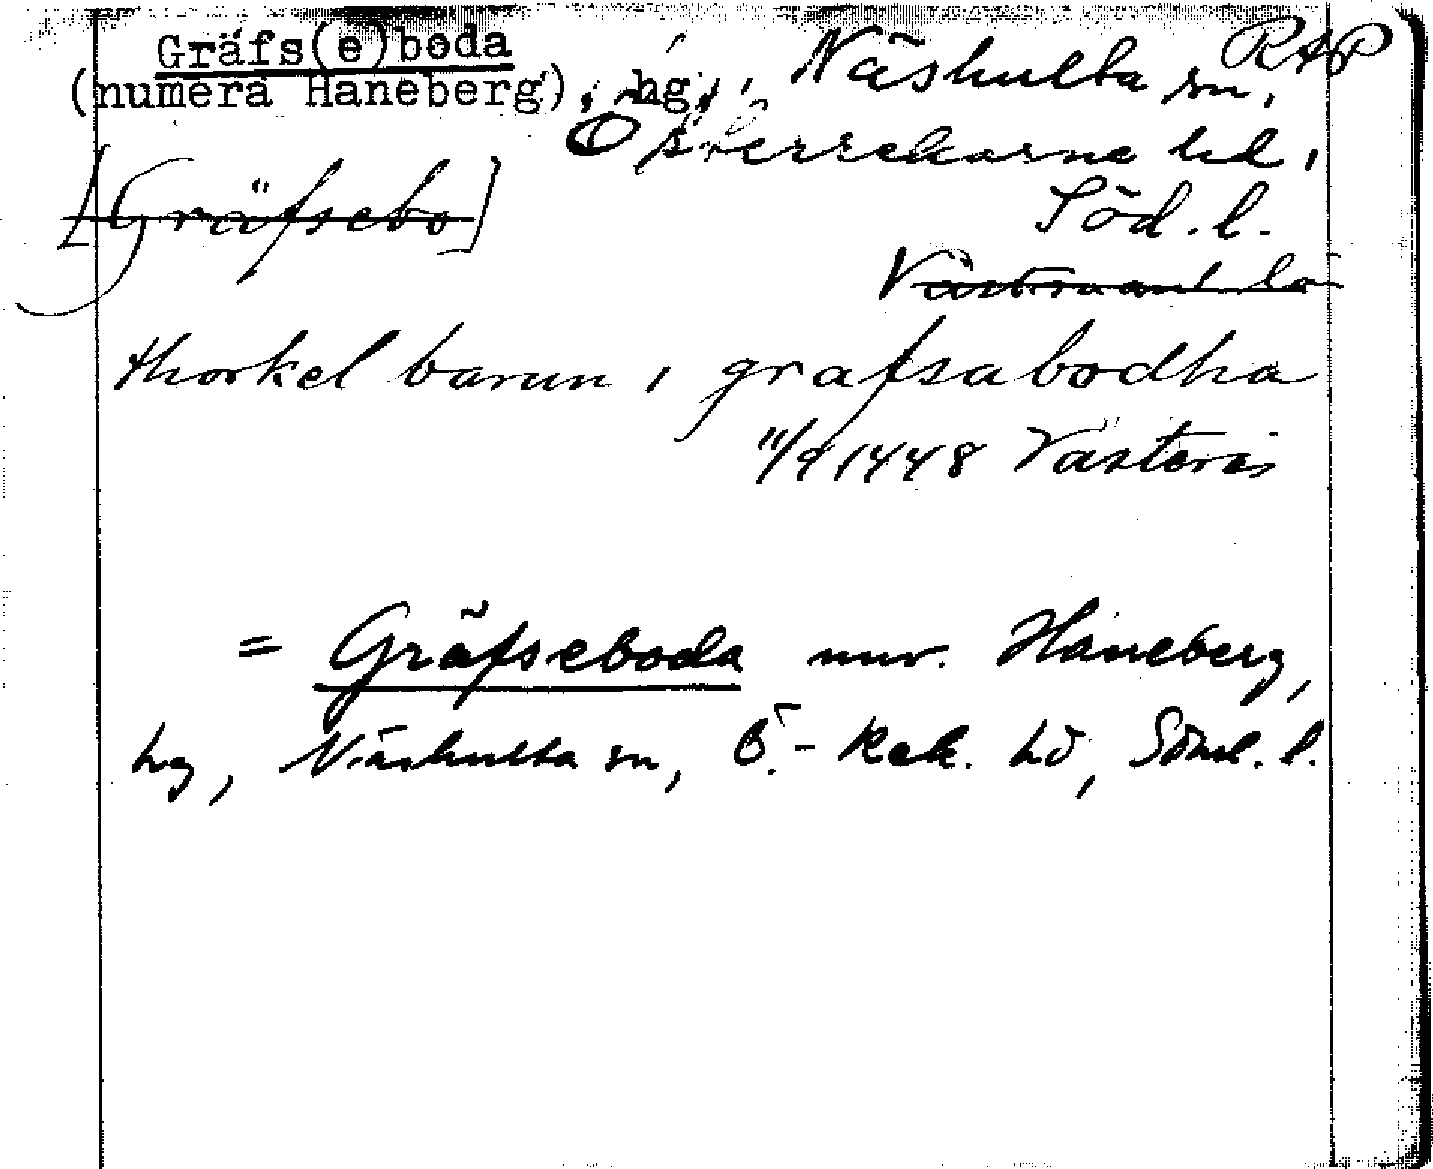 Gräfs(e)boda
(numera Haneberg), hg, Näshulta sn, RAP
Österrekarne hd,
[Gräfsebo] Söd. l.
Västmanl. lä
thorkel barun i grafsabodha
11/9 1448 Västerås
= Gräfseboda nuv. Haneberg,
hg, Näshulta sn, Ö.-Rek. hd, Söml. l.